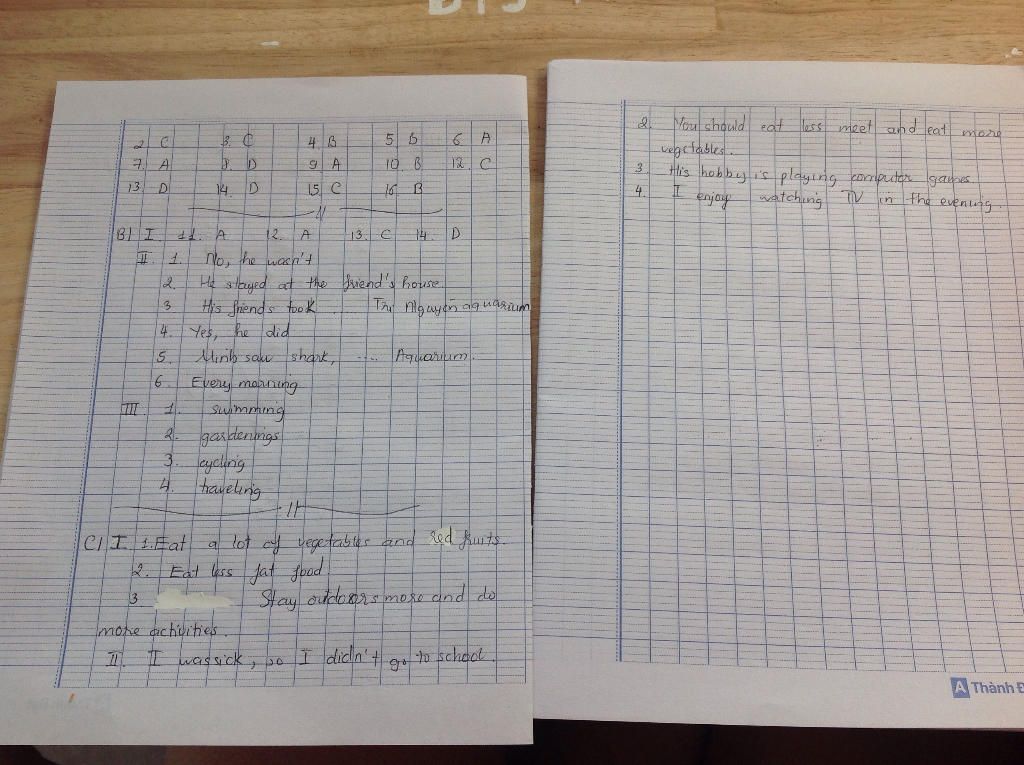 2. C 3. C 4. B 5. B 6. A
7. A 8. D 9. A 10. B 12. C
13. D 14. D 15. C 16. B
B) I. 11. A 12. A 13. C 14. D
II. 1. No, he wasn't
2. He stayed at the friend's house.
3 His friends took .... Trí Nguyên aquarium
4. Yes, he did
5. Minh saw shark, .... Aquarium.
6. Every morning
III. 1. swimming
2. gardenings
3. cycling
4. traveling
C) I 1. Eat a lot of vegetables and red fruits.
2. Eat less fat food.
3 Stay outdoors more and do
more activities.
II. I was sick, so I didn't go to school.
2. You should eat less meet and eat more
vegetables.
3. His hobby is playing computer games
4. I enjoy watching TV in the evening.
A Thành Đ